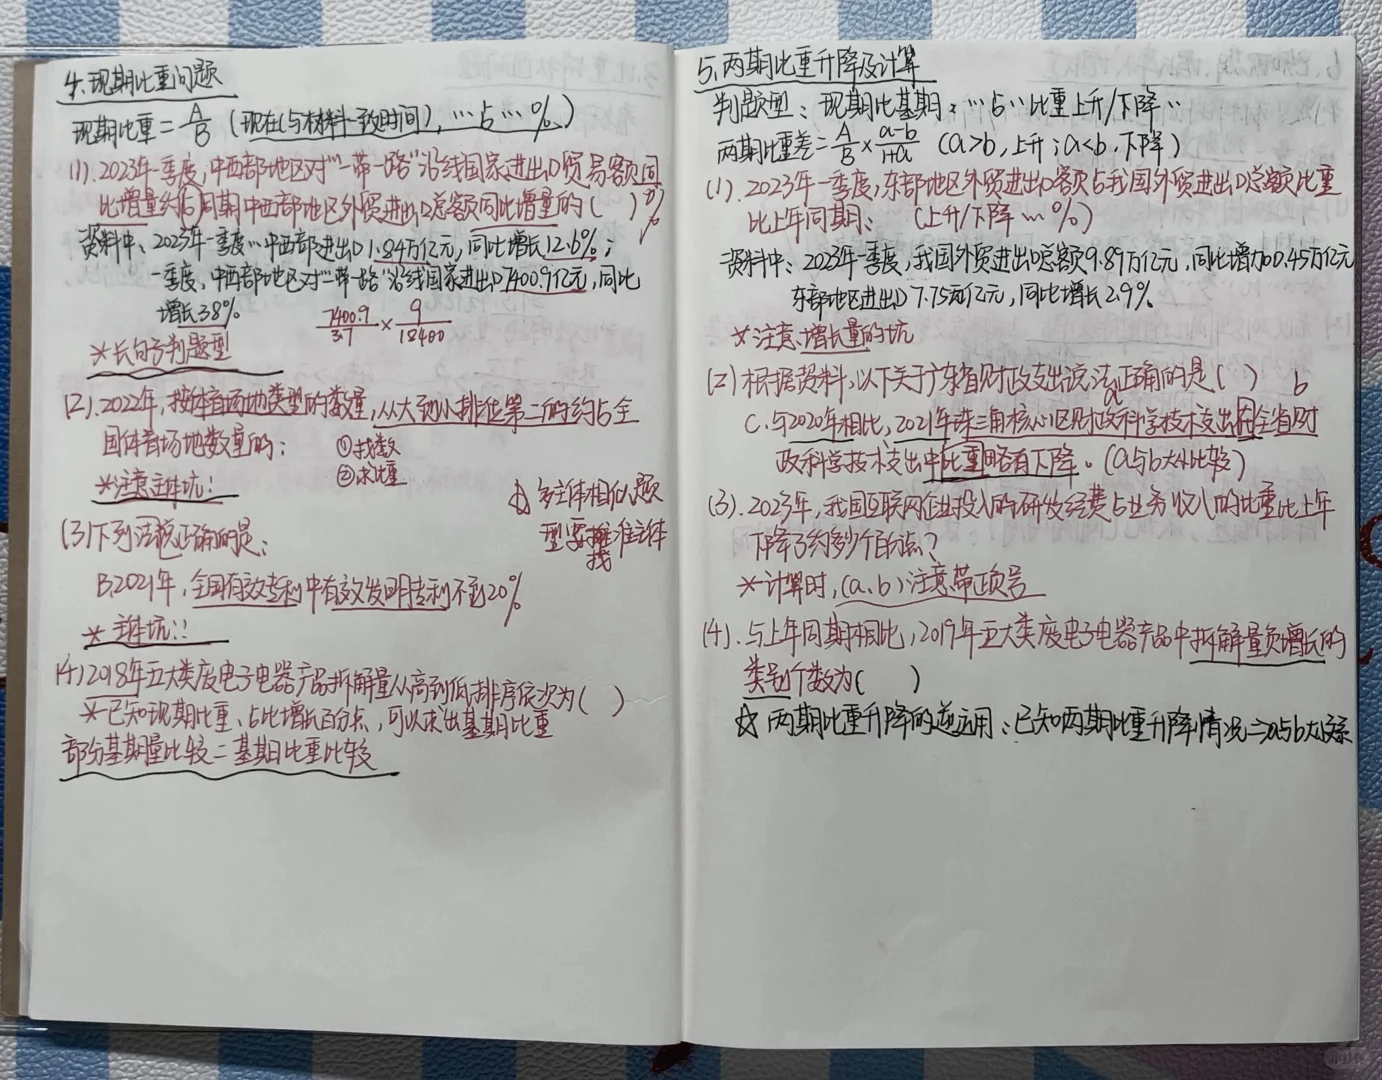 4.现期比重问题
现期比重=A/B (现在(与材料一致时间),…占…%)
(1).2023年一季度,中西部地区对"一带一路"沿线国家进出口贸易额同
比增量约占同期中西部地区外贸进出口总额同比增量的( )%
资料中:2023年一季度…中西部进出口1.84万亿元,同比增长12.6%;
一季度,中西部地区对"一带一路"沿线国家进出口7400.9亿元,同比
增长38%。 7400.9/37×9/18400
*长句子判题型
(2).2022年,按体育场地类型的数量,从大到小排位第二的约占全
国体育场地数量的: ①找数
②求比重
*注意主体坑!
☆多主体相似题
型要推准主体
找
(3)下列说法正确的是:
B.2021年,全国有效专利中有效发明专利不到20%
*主体坑!!
(4)2018年五大类废电子电器产品拆解量从高到低排序依次为( )
*已知现期比重、占比增长百分点,可以求出基期比重
部分基期量比较=基期比重比较
5.两期比重升降及计算
判题型:现期比基期:…占…比重上升/下降…
两期比重差=A/B×a-b/1+a (a>b,上升;a<b,下降)
(1).2023年一季度,东部地区外贸进出口额占我国外贸进出口总额比重
比上年同期: (上升/下降…%)
资料中:2023年一季度,我国外贸进出口总额9.89万亿元,同比增加0.45万亿元
东部地区进出口7.75万亿元,同比增长2.9%。
*注意:增长量的坑
(2)根据资料,以下关于广东省财政支出说法正确的是( ) b
a
C.与2020年相比,2021年珠三角核心区财政科学技术支出在全省财
政科学技术支出中比重略有下降。(a与b大小比较)
(3).2023年,我国互联网企业投入的研发经费占业务收入的比重比上年
下降了约多少个百分点?
*计算时,(a、b)注意带正负号
(4).与上年同期相比,2019年五大类废电子电器产品中拆解量负增长的
类别个数为( )
☆两期比重升降的逆运用:已知两期比重升降情况⇒a与b大小关系